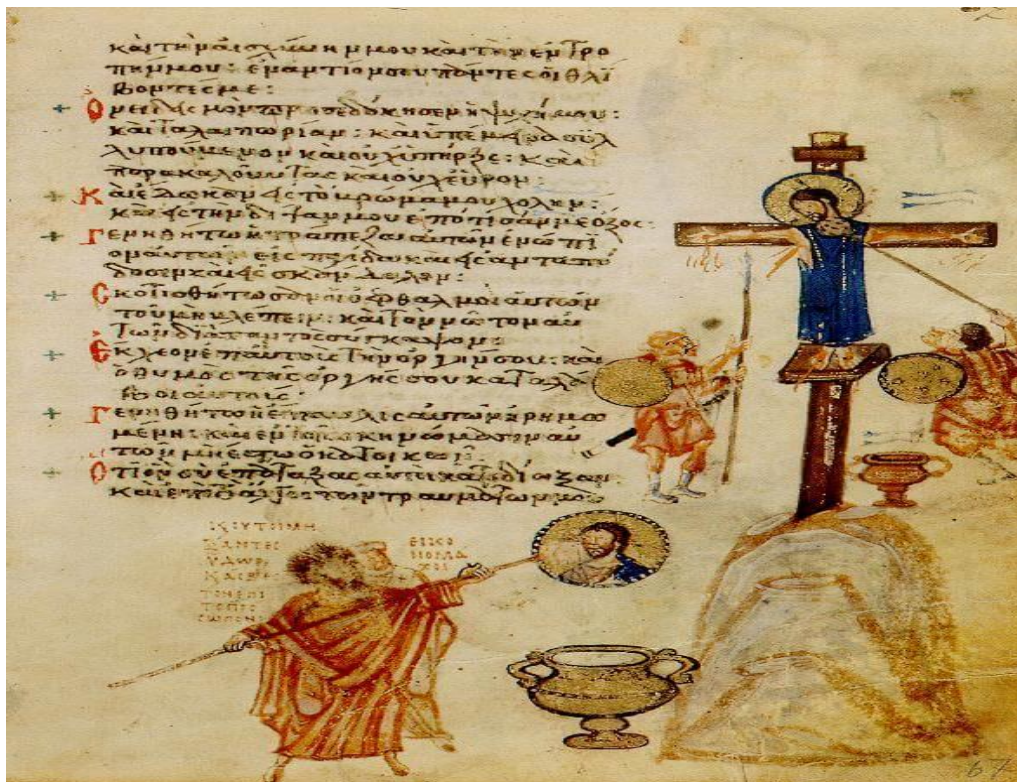 καὶ τὴν αἰσχύνην μου καὶ τὴν ἐντρο
πήν μου: ἐναντίον σου πάντες οἱ θλί
βοντές με:
Ὀνειδισμὸν προσεδόκησεν ἡ ψυχή μου:
καὶ ταλαιπωρίαν: καὶ ὑπέμεινα συλ
λυπούμενον καὶ οὐχ ὑπῆρξε: καὶ
παρακαλοῦντας καὶ οὐχ εὗρον:
Καὶ ἔδωκαν εἰς τὸ βρῶμά μου χολήν:
καὶ εἰς τὴν δίψαν μου ἐπότισάν με ὄξος:
Γενηθήτω ἡ τράπεζα αὐτῶν ἐνώπι
ον αὐτῶν εἰς παγίδα καὶ εἰς ἀνταπό
δοσιν καὶ εἰς σκάνδαλον:
Σκοτισθήτωσαν οἱ ὀφθαλμοὶ αὐτῶν
τοῦ μὴ βλέπειν: καὶ τὸν νῶτον αὐ
τῶν διὰ παντὸς σύγκαμψον:
Ἔκχεον ἐπ' αὐτοὺς τὴν ὀργήν σου: καὶ
ὁ θυμὸς τῆς ὀργῆς σου καταλά
βοι αὐτούς:
Γενηθήτω ἡ ἔπαυλις αὐτῶν ἠρημω
μένη: καὶ ἐν τοῖς σκηνώμασιν αὐ
τῶν μὴ ἔστω ὁ κατοικῶν:
Ὅτι ὃν σὺ ἐπάταξας αὐτοὶ κατεδίωξαν:
καὶ ἐπὶ τὸ ἄλγος τῶν τραυμάτων μου
ΥΔΩΡ
ΕΙΚΟ
ΝΟΜΑ
ΧΟΙ
67